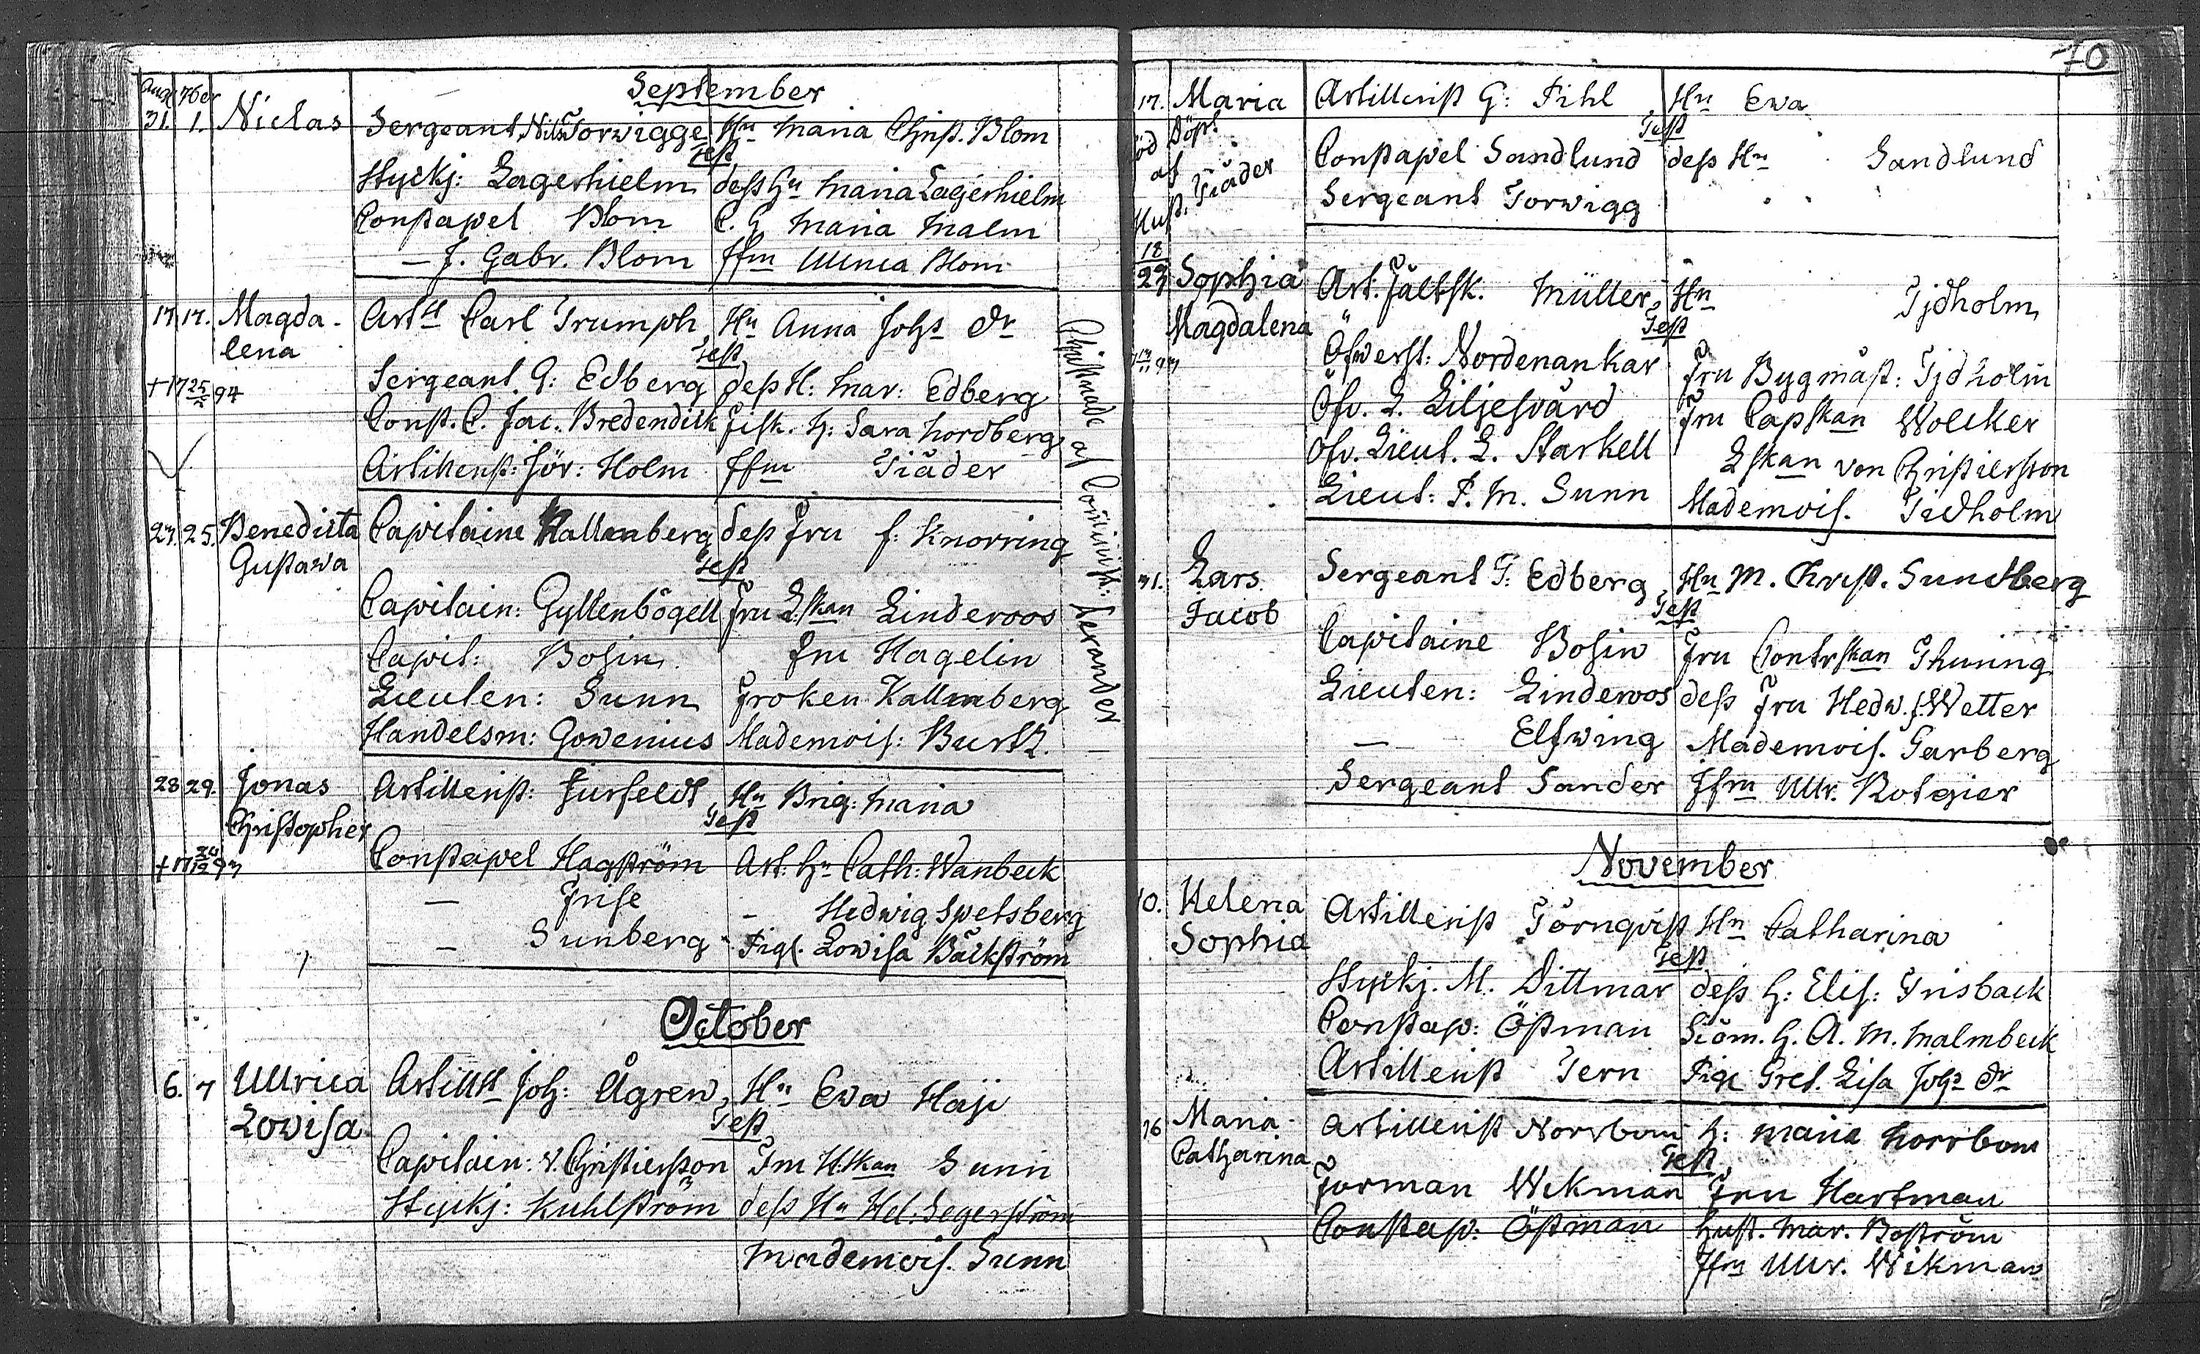 September
Aug 7ber
31. 1. Niclas Sergeant Nils Torwigge, Hn Maria Christ. Blom
Test
Styckj: Lagerhielm dess Hu Maria Lagerhielm
Constapel Blom C. G Maria Malm
— J. Gabr. Blom Jfru Ullrica Blom
17 17. Magda-
lena
Artll Carl Trumph, Hu Anna Johs Dr
Test
†17 25 94
Sergeant G: Edberg dess H: Mar: Edberg
Const. C. Jac. Bredendick Fisk. H: Sara Nordberg
Artillerist: Jör: Holm Jfru Tiäder
23. 25. Benedicta
Gustawa
Capitaine Kallenberg dess Fru f: Knorring
Test
Capitain: Gyllenbögell Fru Lskan Linderoos
Capit: Bosin Fru Hagelin
Lieuten: Sunn Froken Kallenberg
Handelsm: Gowenius Mademois: Burtz.
28 29. Jonas
Christopher
Artillerist: Furfeldt, Hu Brig: Maria
Test
Constapel Hagström Art. Hu Cath: Wanbeck
— Frise — Hedwig Spetsberg
— Sunberg Pigl. Lovisa Bäckström
October
6. 7 Ullrica
Lovisa
Artillst Joh: Ågren, Hu Ewa Haji
Test
Capitain: v. Christiersson Fru H:skan Sunn
Styckj: Kuhlström dess Hu Hel: Segerström
Mademois. Sunn
Christnade af Comminist: Serander
70
17. Maria
Döpt
af
Tiäder
Artillerist G: Pihl, Hu Ewa
Test
Constapel Sandlund dess Hu Sandlund
Sergeant Torwigg
18
29 Sophia
Magdalena
Art. Fältsk. Müller, Hu Tjdholm
Test
Öfverst: Nordenankar Fru Bygmäst: Tjdholm
Öfv. L. Liljesvärd Fru Capskan Wolcker
Öfv. Lieut. L. Starkell Lskan von Christiersson
Lieut: P. M. Sunn Mademois. Tidholm
31. Lars
Jacob
Sergeant P: Edberg, Hu M. Christ. Sundberg
Test
Capitaine Bosin Fru Contrskan Thuring
Lieuten: Linderoos dess Fru Hedw. f. Wetter
— Elfwing Mademois. Garberg
Sergeant Sander Jfru Ullr. Rotgier
November
10. Helena
Sophia
Artillerist Törnqvist Hu Catharina
Test
Styckj. M. Dittmar dess H: Elis: Grisback
Constap: Östman Siöm. H. A. M. Malmbeck
Artillerist Tern Pig Gret. Lisa Johs Dr
16 Maria
Catharina
Artillerist Norrbom H: Maria Norrbom
Test
Forman Wikman Fru Hartman
Constap: Östman Hust. Mar. Boström
Jfru Ullr. Wikman